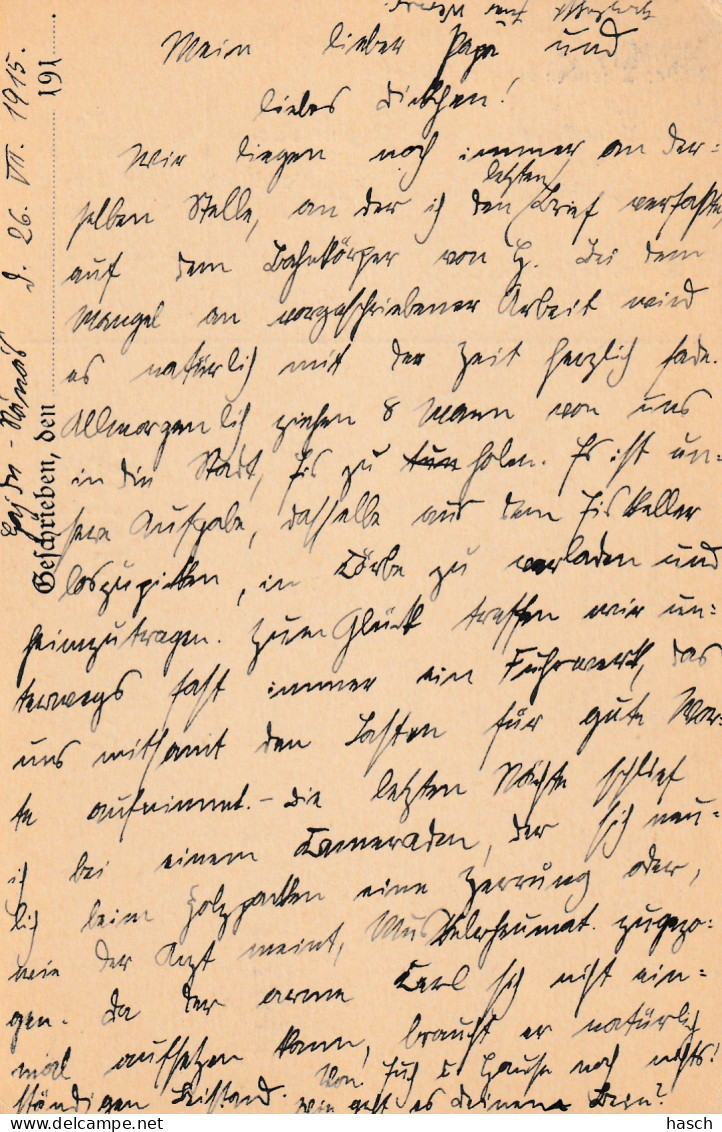 Mein lieber Papa und
liebes Dickchen!
Wir liegen noch immer an der=
selben Stelle, an der ich den letzten Brief verfasste,
auf dem Bahnkörper von H. Bei dem
Mangel an vorgeschriebener Arbeit wird
es natürlich mit der Zeit herzlich fade.
Allmorgenlich ziehen 8 Mann von uns
in die Stadt, Eis zu holen. Es ist un=
sere Aufgabe, dasselbe aus dem Eiskeller
loszupicken, in Körbe zu verladen und
heimzutragen. Zum Glück treffen wir un=
terwegs fast immer ein Fuhrwerk, das
uns mitsamt den Lasten für gute Wor=
te aufnimmt. – Die letzten Nächte schlief
ich bei einem Kameraden, der sich neu=
lich beim Holzhacken eine Zerrung oder,
wie der Arzt meint, Muskelrheumat. zugezo=
gen. Da der arme Kerl sich nicht ein=
mal aufsetzen kann, braucht er natürlich
ständigen Beistand. Von Euch z. Hause noch nichts!
Wie geht es Deinem Bein?
d. 26. VII. 1915.
Geschrieben, den 191